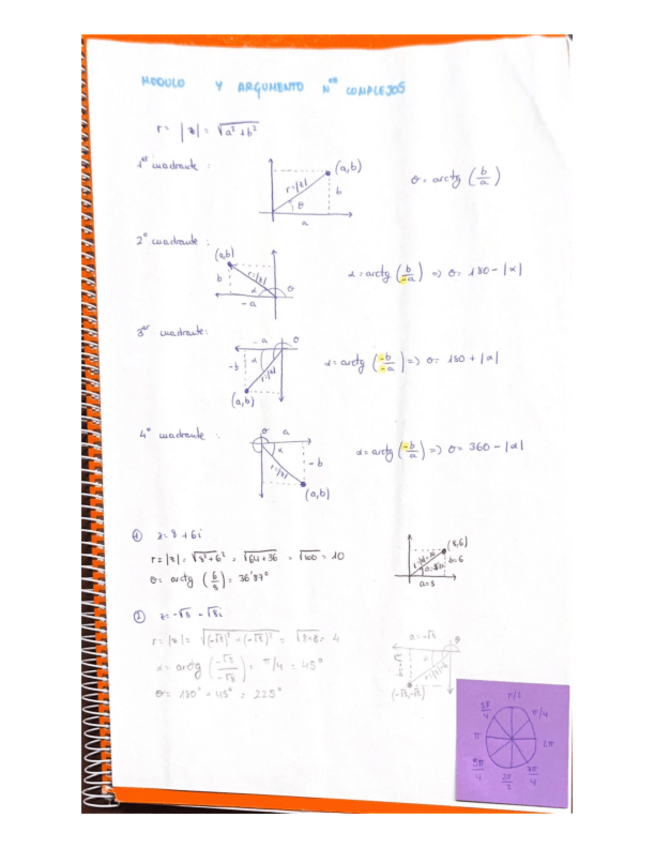 MODULO Y ARGUMENTO Nos COMPLEJOS
r = |z| = √a² + b²
1er cuadrante :
(a,b)
r=|z|
b
θ
a
θ = arctg (b/a)
2º cuadrante :
(a,b)
r=|z|
b
α
θ
-a
α = arctg (b/-a) => θ = 180 - |α|
3er cuadrante:
-a
θ
-b
α
r=|z|
(a,b)
α = arctg (-b/-a) => θ = 180 + |α|
4º cuadrante :
θ
a
α
r=|z|
-b
(a,b)
α = arctg (-b/a) => θ = 360 - |α|
① z = 8 + 6i
r = |z| = √8² + 6² = √64 + 36 = √100 = 10
θ = arctg (6/8) = 36'87°
(8,6)
b=6
a=8
② z = -√8 - √8i
r = |z| = √(-√8)² + (-√8)² = √8+8 = 4
α = arctg (-√8/-√8) = π/4 = 45°
θ = 180° + 45° = 225°
a = -√8
θ
α
b = -√8
r=|z|=4
(-√8,-√8)
π/2
3π/4
π/4
π
2π
5π/4
3π/2
7π/4